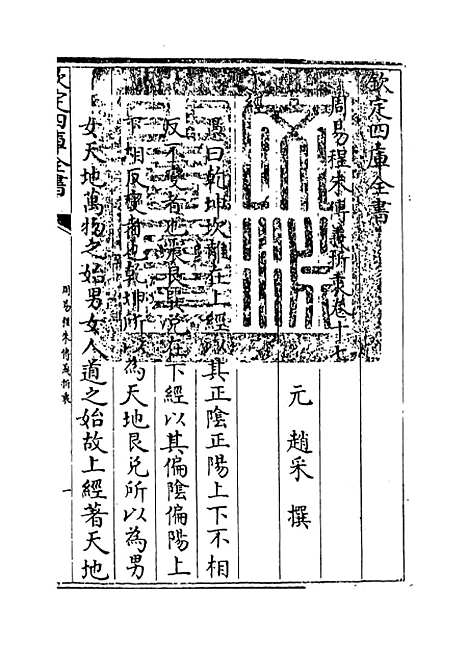 欽定四庫全書
周易程朱傳義折衷卷十七
元 趙采 撰
經
愚曰乾坤坎離在上經以其正陰正陽上下不相
反不變者也震艮巽兌在下經以其偏陰偏陽上
下相反變者也乾坤所以為天地艮兌所以為男
女天地萬物之始男女人道之始故上經著天地
欽定四庫全書
周易程朱傳義折衷
一